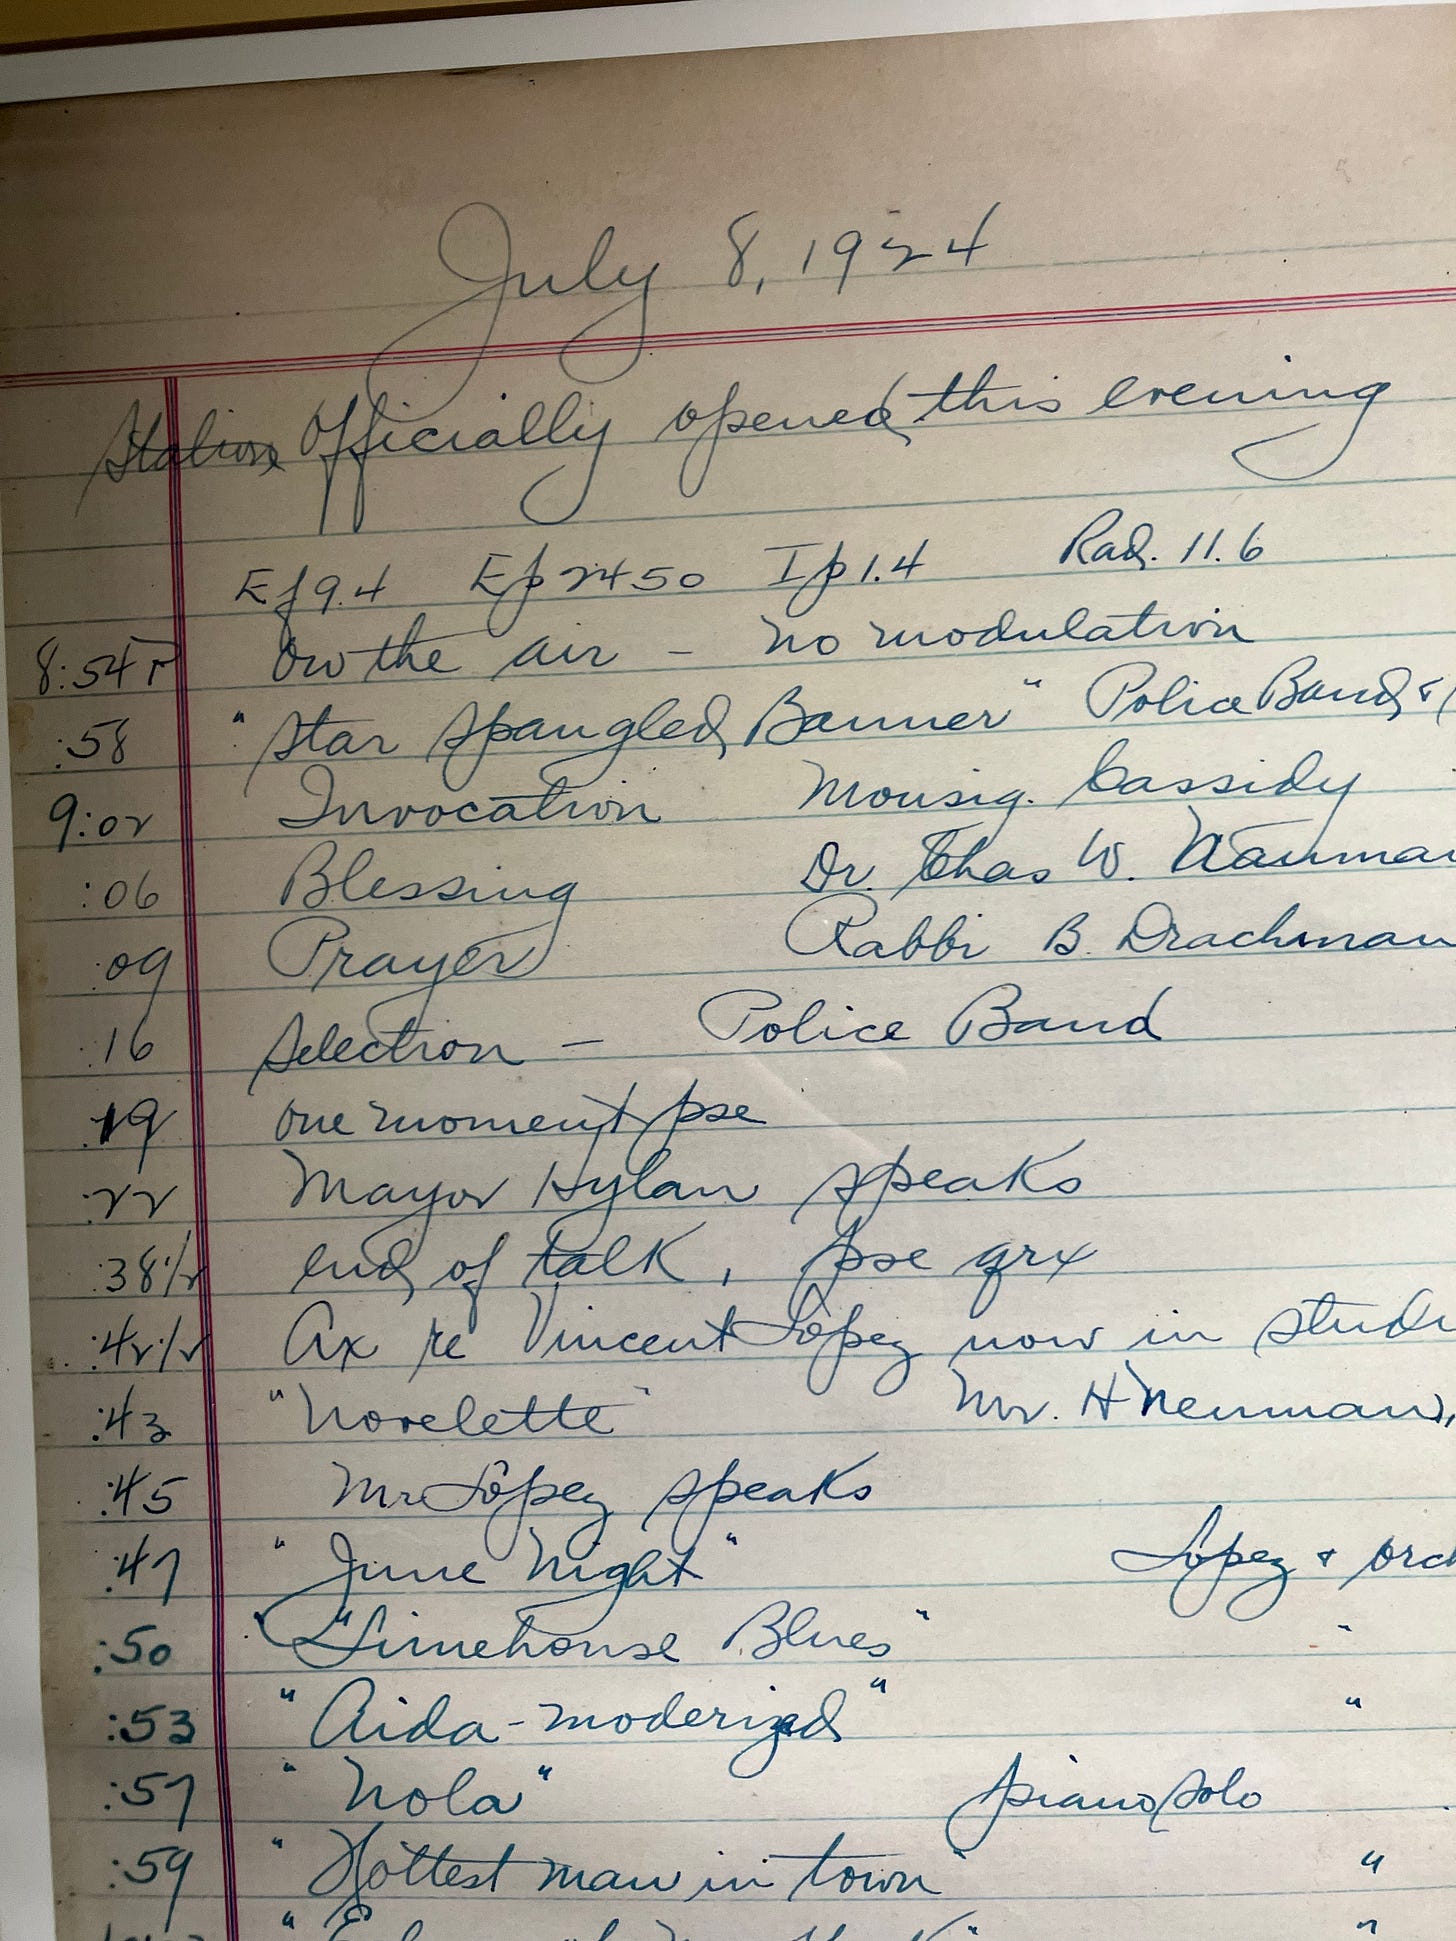 July 8, 1924
Station Officially opened this evening
Ef 9.4 Ep 2450 Ip 1.4 Rad. 11.6
8:54 P On the air - no modulation
:58 "Star Spangled Banner" Police Band &
9:02 Invocation Monsig. Cassidy
:06 Blessing Dr. Chas W.
:09 Prayer Rabbi B. Drachman
:16 Selection - Police Band
:19 one moment pse
:22 Mayor Hylan speaks
:38 1/2 end of talk, pse qrx
:42 1/2 Ax re Vincent Lopez now in studi
:43 "Novelette" Mr. H Neuman,
:45 Mr Lopez speaks
:47 "June Night" Lopez & orch
:50 "Limehouse Blues" "
:53 "Aida - moderized" "
:57 "Nola" piano solo
:59 "Hottest man in town" "